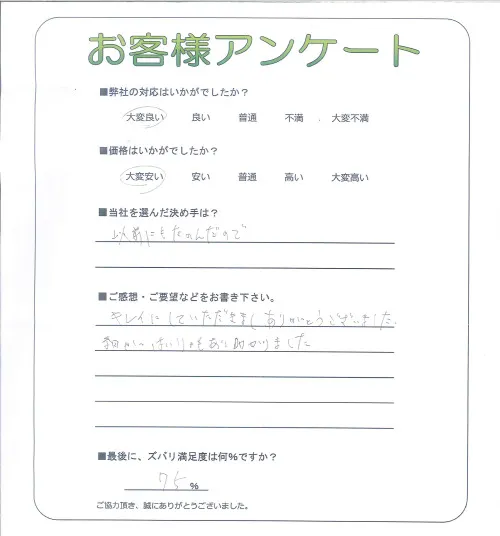 お客様アンケート
■弊社の対応はいかがでしたか？
大変良い 良い 普通 不満 大変不満
■価格はいかがでしたか？
大変安い 安い 普通 高い 大変高い
■当社を選んだ決め手は？
以前にもたのんだので
■ご感想・ご要望などをお書き下さい。
キレイにしていただきましありがとうございました。
助かりました
■最後に、ズバリ満足度は何%ですか？
75 %
ご協力頂き、誠にありがとうございました。